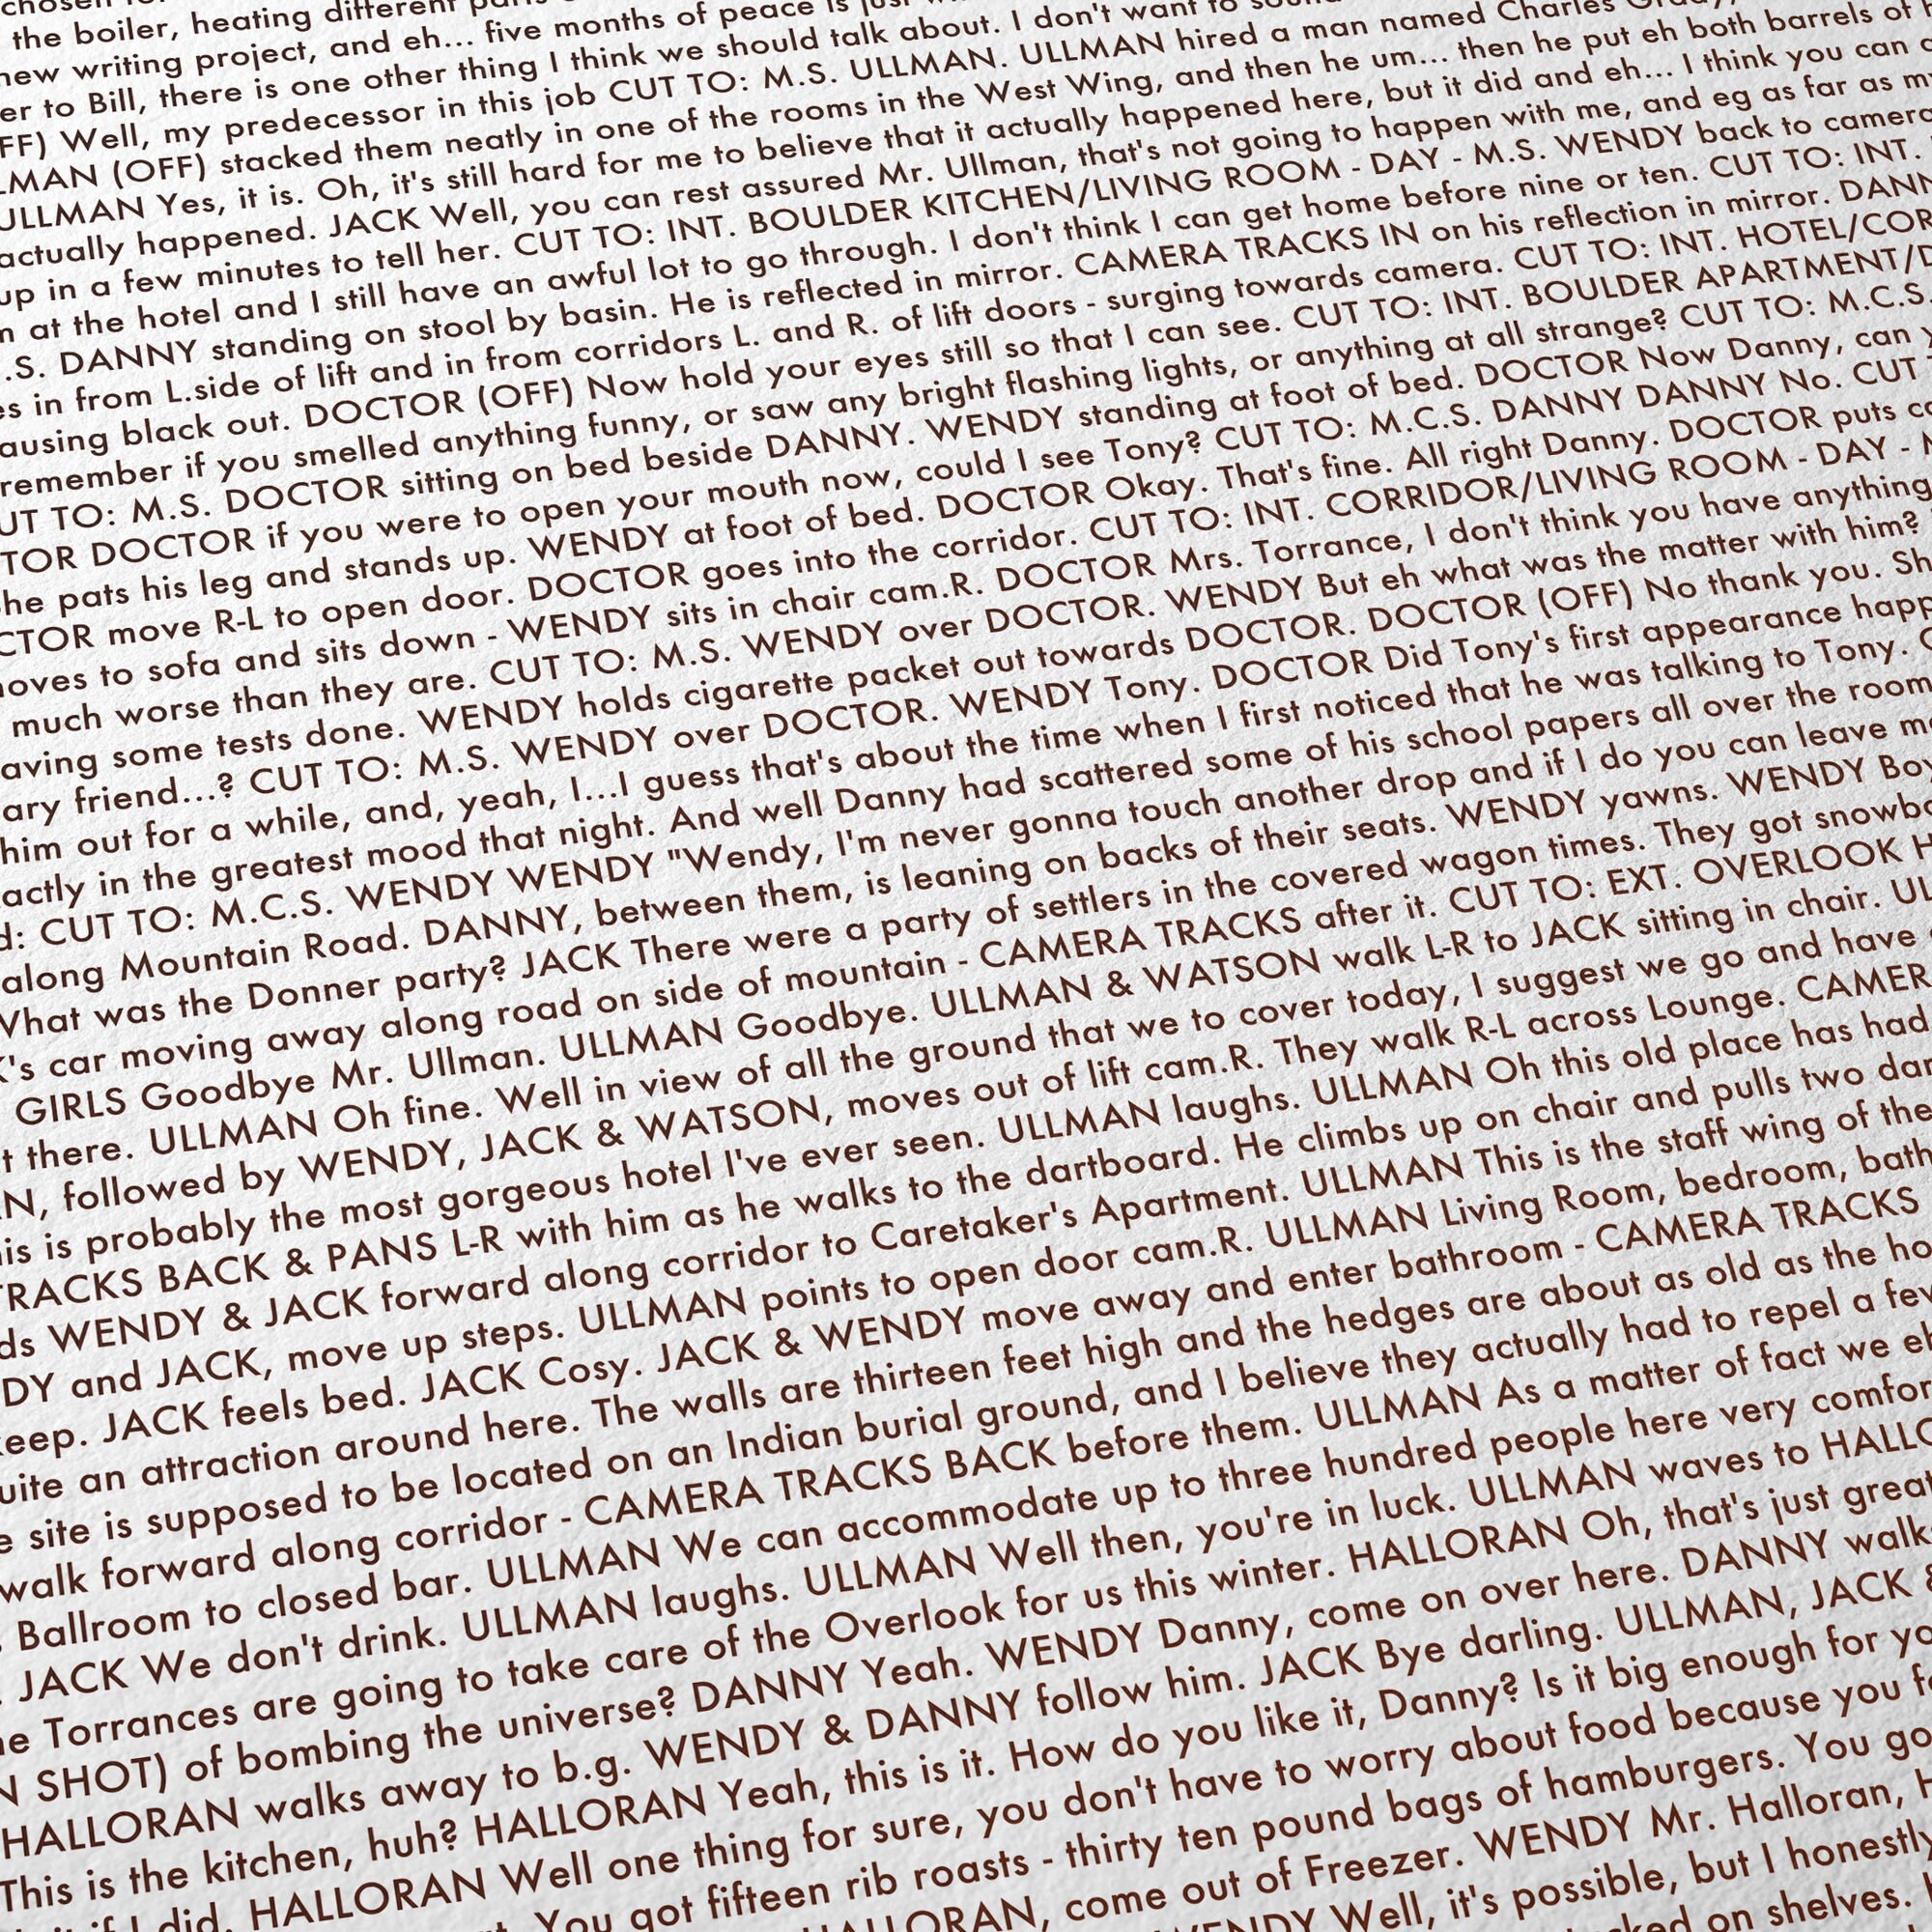 chosen for
the boiler, heating different
new writing project, and eh... five months of peace is just
er to Bill, there is one other thing I think we should talk about. I don't want to
FF) Well, my predecessor in this job CUT TO: M.S. ULLMAN. ULLMAN hired a man named Charles Grady,
LMAN (OFF) stacked them neatly in one of the rooms in the West Wing, and then he um... then he put eh both barrels of
ULLMAN Yes, it is. Oh, it's still hard for me to believe that it actually happened here, but it did and eh... I think you can
actually happened. JACK Well, you can rest assured Mr. Ullman, that's not going to happen with me, and eg as far as m
up in a few minutes to tell her. CUT TO: INT. BOULDER KITCHEN/LIVING ROOM - DAY - M.S. WENDY back to camera
n at the hotel and I still have an awful lot to go through. I don't think I can get home before nine or ten. CUT TO: INT.
.S. DANNY standing on stool by basin. He is reflected in mirror. CAMERA TRACKS IN on his reflection in mirror. DANN
es in from L.side of lift and in from corridors L. and R. of lift doors - surging towards camera. CUT TO: INT. HOTEL/COR
ausing black out. DOCTOR (OFF) Now hold your eyes still so that I can see. CUT TO: INT. BOULDER APARTMENT/
remember if you smelled anything funny, or saw any bright flashing lights, or anything at all strange? CUT TO: M.C.S.
UT TO: M.S. DOCTOR sitting on bed beside DANNY. WENDY standing at foot of bed. DOCTOR Now Danny, can
TOR DOCTOR if you were to open your mouth now, could I see Tony? CUT TO: M.C.S. DANNY DANNY No. CUT
he pats his leg and stands up. WENDY at foot of bed. DOCTOR Okay. That's fine. All right Danny. DOCTOR puts co
CTOR move R-L to open door. DOCTOR goes into the corridor. CUT TO: INT. CORRIDOR/LIVING ROOM - DAY -
oves to sofa and sits down - WENDY sits in chair cam.R. DOCTOR Mrs. Torrance, I don't think you have anything
much worse than they are. CUT TO: M.S. WENDY over DOCTOR. WENDY But eh what was the matter with him?
aving some tests done. WENDY holds cigarette packet out towards DOCTOR. DOCTOR (OFF) No thank you. Sh
ary friend...? CUT TO: M.S. WENDY over DOCTOR. WENDY Tony. DOCTOR Did Tony's first appearance happ
him out for a while, and, yeah, I...I guess that's about the time when I first noticed that he was talking to Tony.
actly in the greatest mood that night. And well Danny had scattered some of his school papers all over the room
d: CUT TO: M.C.S. WENDY WENDY "Wendy, I'm never gonna touch another drop and if I do you can leave m
along Mountain Road. DANNY, between them, is leaning on backs of their seats. WENDY yawns. WENDY Boy
What was the Donner party? JACK There were a party of settlers in the covered wagon times. They got snowbo
K's car moving away along road on side of mountain - CAMERA TRACKS after it. CUT TO: EXT. OVERLOOK H
GIRLS Goodbye Mr. Ullman. ULLMAN Goodbye. ULLMAN & WATSON walk L-R to JACK sitting in chair. UL
t there. ULLMAN Oh fine. Well in view of all the ground that we to cover today, I suggest we go and have
N, followed by WENDY, JACK & WATSON, moves out of lift cam.R. They walk R-L across Lounge. CAMER
his is probably the most gorgeous hotel I've ever seen. ULLMAN laughs. ULLMAN Oh this old place has had
TRACKS BACK & PANS L-R with him as he walks to the dartboard. He climbs up on chair and pulls two dar
ds WENDY & JACK forward along corridor to Caretaker's Apartment. ULLMAN This is the staff wing of the
DY and JACK, move up steps. ULLMAN points to open door cam.R. ULLMAN Living Room, bedroom, bath
keep. JACK feels bed. JACK Cosy. JACK & WENDY move away and enter bathroom - CAMERA TRACKS
uite an attraction around here. The walls are thirteen feet high and the hedges are about as old as the ho
e site is supposed to be located on an Indian burial ground, and I believe they actually had to repel a few
walk forward along corridor - CAMERA TRACKS BACK before them. ULLMAN As a matter of fact we el
Ballroom to closed bar. ULLMAN We can accommodate up to three hundred people here very comfor
. JACK We don't drink. ULLMAN laughs. ULLMAN Well then, you're in luck. ULLMAN waves to HALLO
he Torrances are going to take care of the Overlook for us this winter. HALLORAN Oh, that's just great
N SHOT) of bombing the universe? DANNY Yeah. WENDY Danny, come on over here. DANNY walk
HALLORAN walks away to b.g. WENDY & DANNY follow him. JACK Bye darling. ULLMAN, JACK &
This is the kitchen, huh? HALLORAN Yeah, this is it. How do you like it, Danny? Is it big enough for yo
if I did. HALLORAN Well one thing for sure, you don't have to worry about food because you f
You got fifteen rib roasts - thirty ten pound bags of hamburgers. You go
HALLORAN, come out of Freezer. WENDY Mr. Halloran,
WENDY Well, it's possible, but I honestly
on shelves.